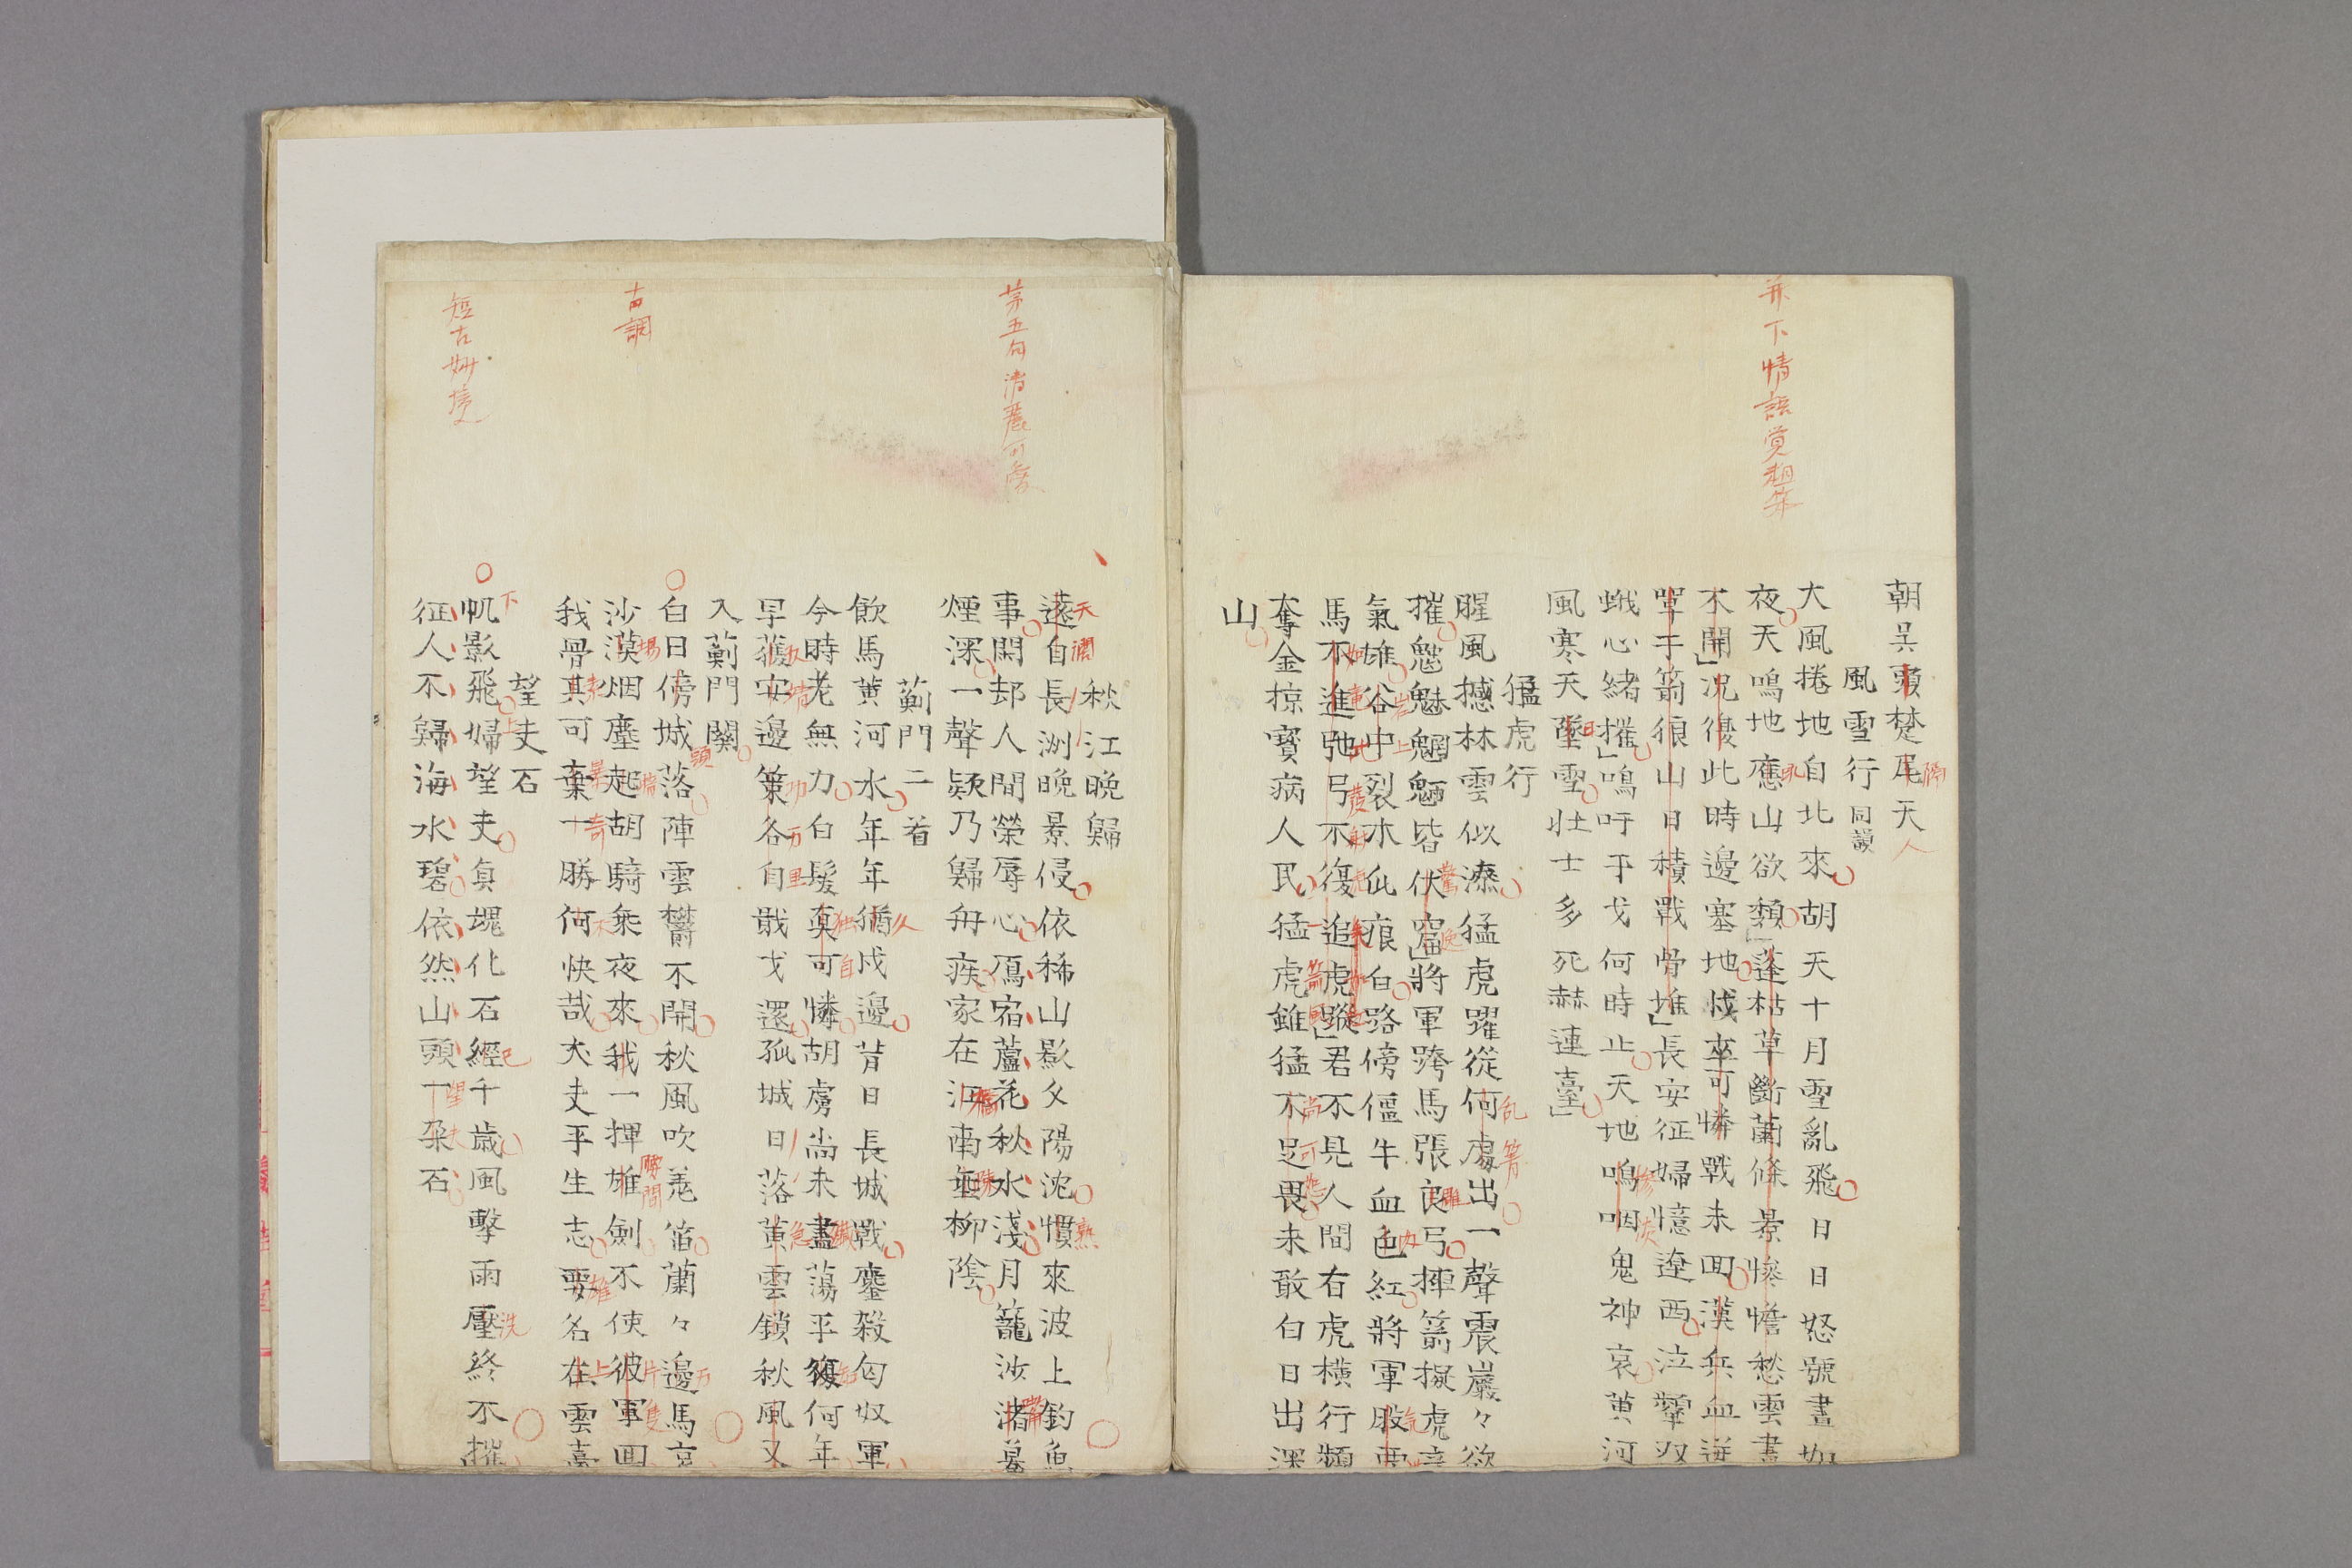 朝吳頭楚尾天
風雪行同韻
大風捲地自北來胡天十月雪亂飛日日怒號晝如
夜天鳴地應山欲頹蓬枯草斷蕭條景慘憺愁雲晝
不開況復此時邊塞地戍卒可憐戰未回漢兵血迸
單于箭狼山日積戰骨堆長安征婦憶遼西泣顰双
蛾心緒摧鳴吁干戈何時止天地鳴咽鬼神哀黄河
風寒天墮雪壮士多死赫連臺
猛虎行
腥風撼林雲似潑猛虎躍從何處出一聲震巖々欲
摧魃魅魍魎皆伏窟將軍跨馬張良弓揮箭擬虎意
氣雄谷中裂木瓜痕白路傍僵牛血色紅將軍股栗
馬不進弛弓不復追虎蹤君不見人間右虎横行頻
奪金掠寳病人民猛虎雖猛不足畏未敢白日出深
山
并下情語覚超筆
秋江晩歸
遠自長洲晩景侵依稀山影夕陽沈慣來波上釣魚
事閑却人間榮辱心鳫宿蘆花秋水淺月籠沙渚暮
煙深一聲欸乃歸舟疾家在江南垂柳陰
薊門二首
飲馬黄河水年年猶戍邊昔日長城戰鏖殺匈奴軍
今時老無力白髪真可憐胡虜尚未盡蕩平復何年
早獲安邊策各自戢戈還孤城日落黄雲鎖秋風又
入薊門關
白日傍城落陣雲欝不開秋風吹羌笛蕭々邊馬哀
沙漠烟塵起胡騎乗夜來我一揮雄劍不使彼軍回
我骨其可棄一勝何快哉大丈平生志要名在雲臺
望夫石
帆影飛婦望夫眞魂化石經千歳風擊雨壓終不摧
征人不歸海水碧依然山頭一朶石
第五句清麗可愛
古調
短古妙境